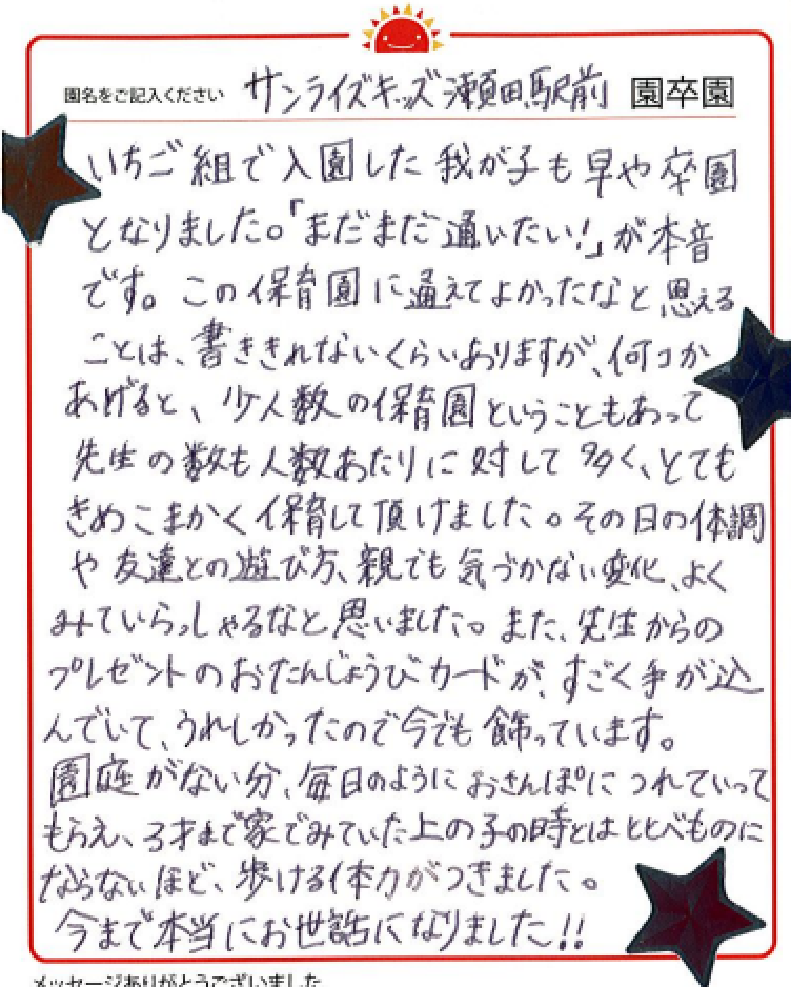 園名をご記入ください サンライズキッズ瀬田駅前 園卒園
いちご組で入園した我が子も早や卒園
となりました。「まだまだ通いたい！」が本音
です。この保育園に通えてよかったなと思える
ことは、書ききれないくらいありますが、何コか
あげると、少人数の保育園ということもあって
先生の数も人数あたりに対して多く、とても
きめこまかく保育して頂けました。その日の体調
や友達との遊び方、親でも気づかない変化、よく
みていらっしゃるなと思いました。また、先生からの
プレゼントのおたんじょうびカードが、すごく手が込
んでいて、うれしかったので今でも飾っています。
園庭がない分、毎日のようにおさんぽにつれていって
もらえ、3才まで家でみていた上の子の時とはとべものに
ならないほど、歩ける体力がつきました。
今まで本当にお世話になりました!!
メッセージありがとうございました